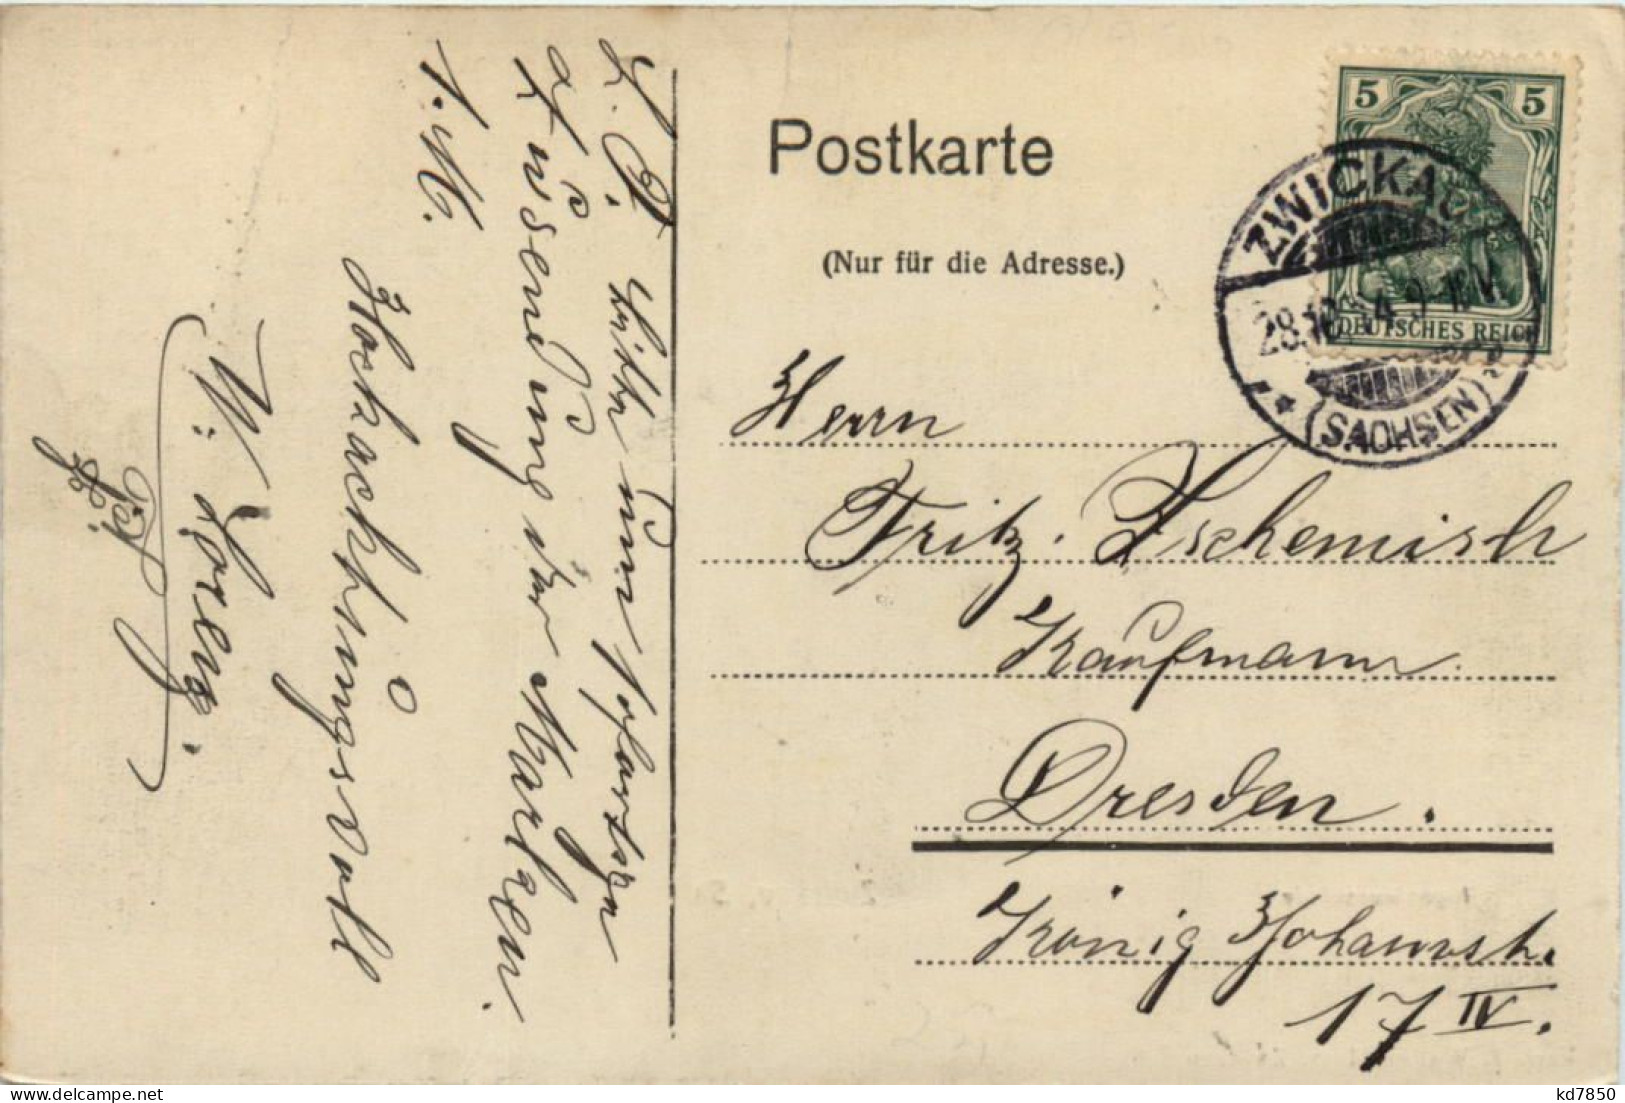 Postkarte
(Nur für die Adresse.)
5 5
DEUTSCHES REICH
ZWICKAU
28.12.
(SACHSEN)
Herrn
Fritz Zschemisch
Kaufmann.
Dresden.
König Johannstr.
17 IV.
bitte um
Zusendung der Marken.
Hochachtungsvoll
W. Lorenz.
kd7850